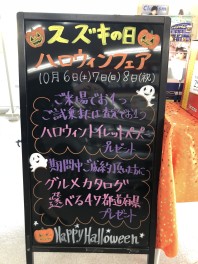 スズキの日
ハロウィンフェア
10月6日(土)7日(日)8日(祝)
ご来場でお1つ
ご試乗または査定でお1つ
ハロウィントイレットペーパー
プレゼント
期間中ご成約頂いた方に
グルメカタログ
選べる47都道府県
プレゼント
Happy Halloween